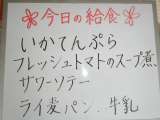 今日の給食
いかてんぷら
フレッシュトマトのスープ煮
サワーソテー
ライ麦パン、牛乳